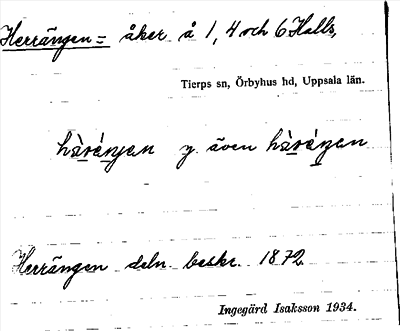 Herrängen = åker å 1, 4 och 6 Halls,
Tierps sn, Örbyhus hd, Uppsala län.
även
Herrängen deln. beskr. 1872
Ingegärd Isaksson 1934.